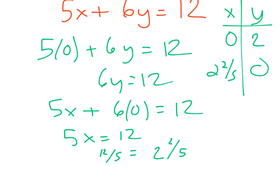 5x + 6y = 12
x y
0 2
2 2/5 0
5(0) + 6y = 12
6y = 12
5x + 6(0) = 12
5x = 12
12/5 = 2 2/5